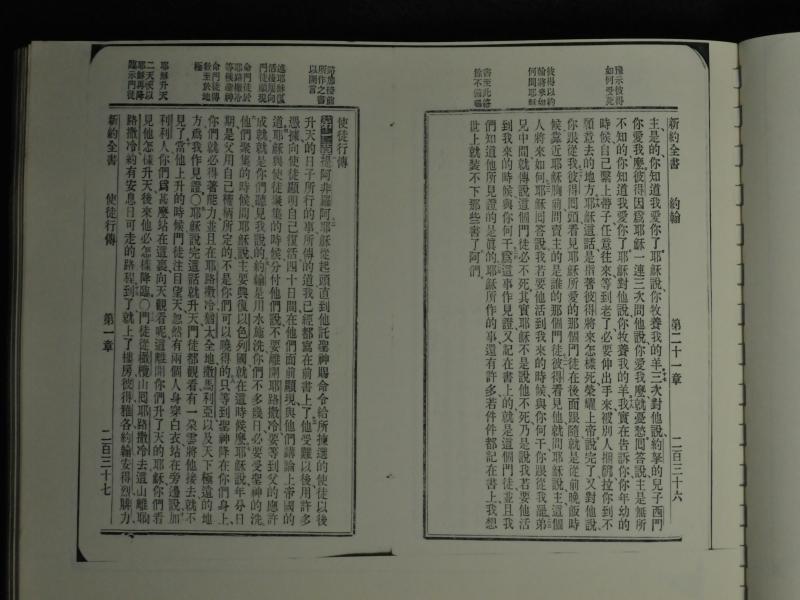 預示彼得
如何受死
彼得以約
翰將來如
何問耶穌
新約全書 約翰 第二十一章 二百三十六
主是的、你知道我愛你了、耶穌說、你牧養我的羊、三次對他說、約拏的兒子西門、
你愛我麼、彼得因爲耶穌一連三次問他說、你愛我麼、就憂愁、囘答說、主是無所
不知的、你知道我愛你了、耶穌對他說、你牧養我的羊、我實在告訴你、你年幼的
時候、自己緊上帶子、任意往來、等到老了、必要伸出手來、被別人捆綁、拉你到不
願意去的地方、耶穌這話、是指著彼得將來怎樣死榮耀上帝、說完了、又對他說、
你跟從我、彼得囘頭看見耶穌所愛的那個門徒、在後面跟隨、就是從前晚飯時
候、靠近耶穌胸前、問賣主的是誰的那個門徒、彼得看見他、就問耶穌說、主、這個
人將來如何、耶穌囘答說、我若要他活到我來的時候、與你何干、你跟從我罷、弟
兄中間就傳說、這個門徒必不死、其實耶穌不是說他不死、乃是說我若要他活
到我來的時候、與你何干、爲這事作見證、又記在書上的、就是這個門徒、並且我
們知道他所見證的是眞的、耶穌所作的事、還有許多、若件件都記在書上、我想
世上就裝不下那些書了、阿們、
述耶穌復
活後屢向
門徒顯現
命門徒於
耶路撒冷
等候聖神
命門徒傳
教至於地
極
耶穌升天
二天使以
耶穌再降
臨示門徒
使徒行傳
提阿非羅阿、耶穌從起頭直到他託聖神賜命令給所揀選的使徒以後
升天的日子、所行的事、所傳的道、我已經都寫在前書上了、他受難以後、用許多
憑據、向使徒顯明自己復活、四十日間、在他們面前顯現、與他們講論上帝國的
道、耶穌與使徒聚集的時候、分付他們說、不要離開耶路撒冷、要等到父的應許
成就、就是你們聽見我說的、約翰是用水施洗、你們不多幾日、必要受聖神的洗、
他們聚集的時候、問耶穌說、主要興復以色列國、就在這時候麼、耶穌說、年分日
期、是父用自己權柄所定的、不是你們可以曉得的、只等到聖神降在你們身上、
你們就必得著能力、並且在耶路撒冷、猶太全地、撒馬利亞、以及天下極遠的地
方、爲我作見證、○耶穌說完這話、就升天、門徒都觀看、有一朵雲將他接去、就不
見了、當他上升的時候、門徒注目望天、忽然有兩個人、身穿白衣、站在旁邊、說、加
利利人、你們爲甚麼站在這裏向天觀看呢、這離開你們升了天的耶穌、你們看
見他怎樣升天、後來他必怎樣降臨、○門徒從橄欖山囘耶路撒冷去、這山離耶
路撒冷約有安息日可走的路程、到了、就上了樓房、彼得、雅各、約翰、安得烈、腓力、
新約全書 使徒行傳 第一章 二百三十七